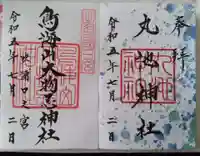 奉拝
丸池神社
令和五年七月二日
鳥海山大物忌神社
吹浦口之宮
令和五年七月二日